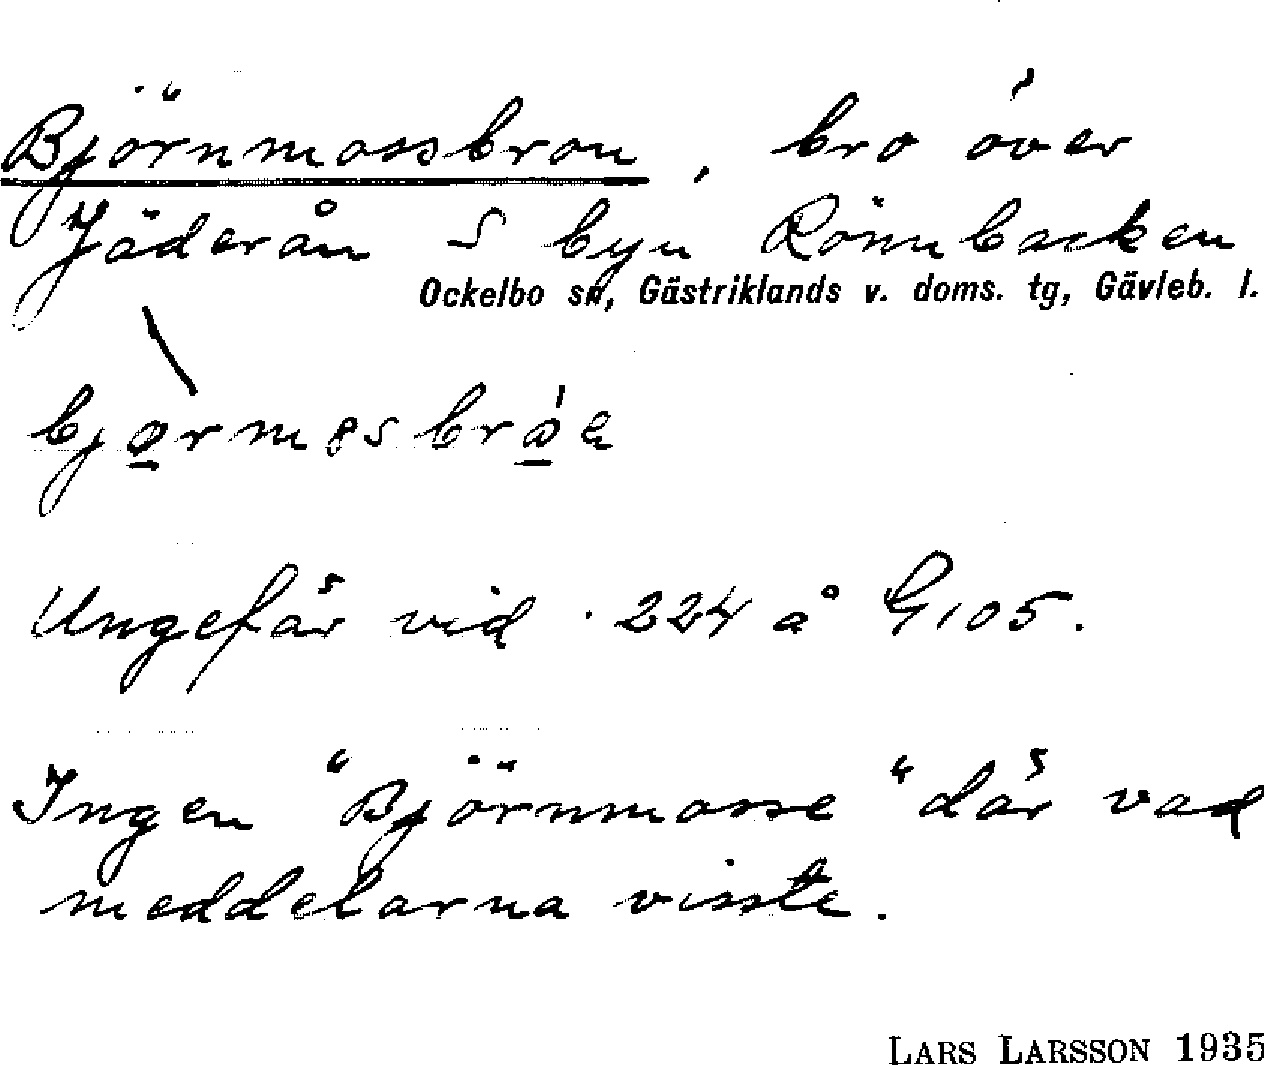 Björnmossbron, bro över
Jäderån S byn Rönnbacken
Ockelbo sn, Gästriklands v. doms. tg, Gävleb. l.
Ungefär vid 224 å G105.
Ingen "Björnmosse" där vad
meddelarna visste.
LARS LARSSON 1935